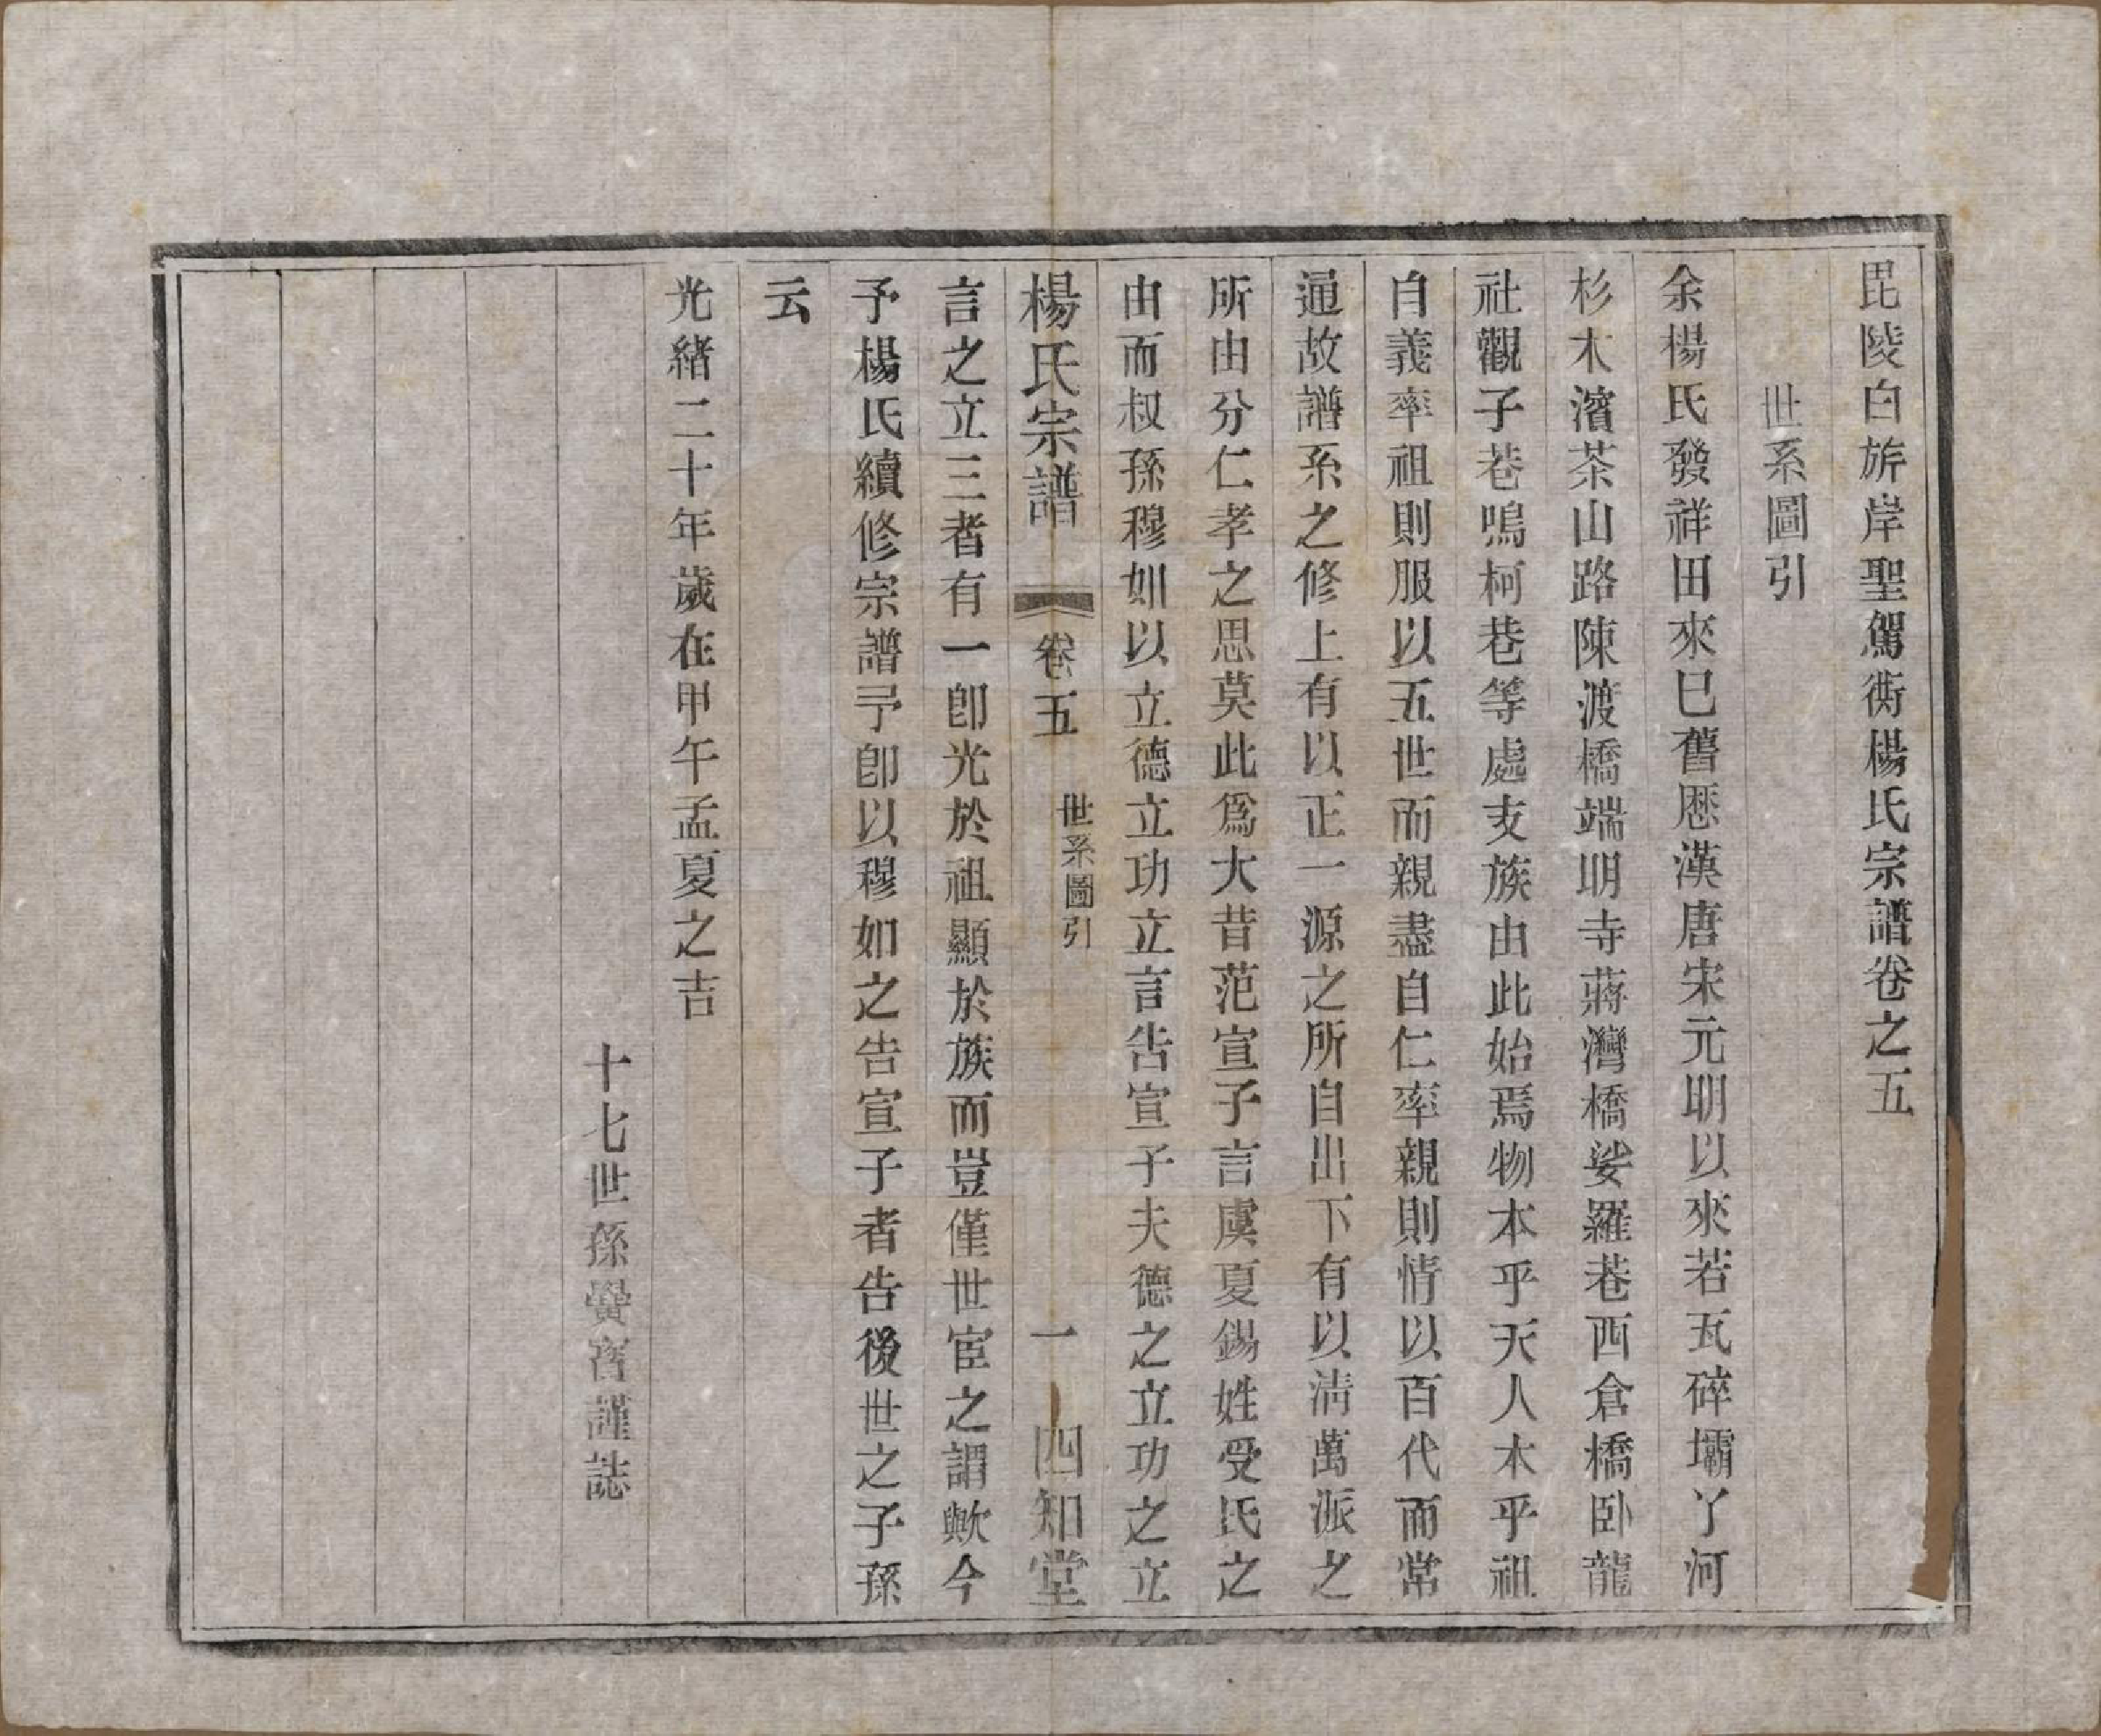 毘陵白旂岸聖駕衖楊氏宗譜卷之五
世系圖引
余楊氏發祥田來已舊歷漢唐宋元明以來若瓦碎壩丫河
杉木濱茶山路陳渡橋端明寺蔣灣橋娑羅巷西倉橋卧龍
社觀子巷鳴柯巷等處支族由此始焉物本乎天人本乎祖
自義率祖則服以五世而親盡自仁率親則情以百代而常
通故譜系之修上有以正一源之所自出下有以清萬派之
所由分仁孝之思莫此爲大昔范宣子言虞夏錫姓受氏之
由而叔孫穆如以立德立功立言告宣子夫德之立功之立
楊氏宗譜 卷五 世系圖引 一 四知堂
言之立三者有一卽光於祖顯於族而豈僅世宦之謂歟今
予楊氏續修宗譜予卽以穆如之告宣子者告後世之子孫
云
光緒二十年歲在甲午孟夏之吉
十七世孫黌宮謹誌